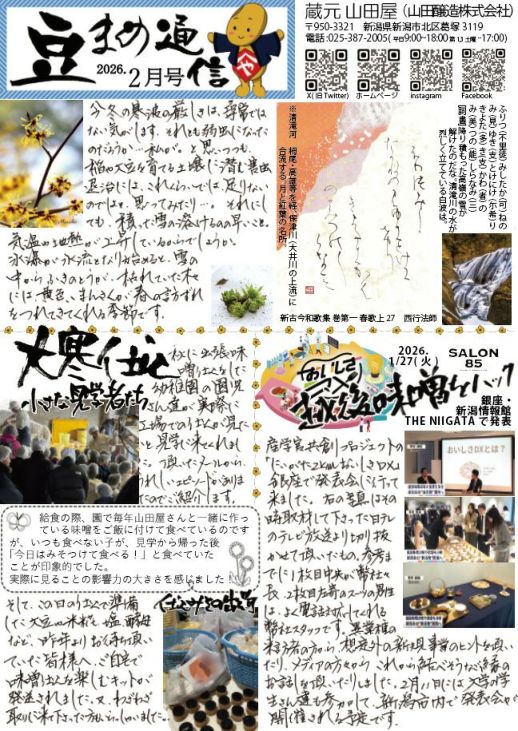 豆まめ通信
2026.2月号
蔵元 山田屋（山田醸造株式会社）
〒950-3321　新潟県新潟市北区葛塚 3119
電話:025-387-2005(平日9:00~18:00 第13土曜~17:00)
X(旧Twitter)
ホームページ
instagram
Facebook
今冬の寒波の厳しさは、尋常では
ない気がします。それとも弱虫になった
のだろうか…私が。と思いつつも、
稲や大豆を育てる土壌に潜む害虫
退治には、これくらいでは足りない
のでは?と思ってみたり…。それにし
ても、積った雪の溶けるのの早いこと。
気温や地熱が上昇しているからでしょうか。
氷瀑が水流となり始めると、雪の
中からふきのとうが、枯れていた木々
には黄色いまんさくが春の訪ずれ
をつれてきてくれる季節です。
※清滝河
栂尾、高雄等を経、保津川（大井川の上流）に
合流する。月と紅葉の名所。
岩間とぢし
新古今和歌集 巻第一 春歌上 27　西行法師
ふりつ(千里徒)みしたか(可)ねの
み(見)ゆき(支)とけにけ(个希)り
きよた(多)き(支)かわ(者)の
み(美)つの(能)しらなみ(三)
訓意 降り積もった高嶺の雪が
解けたのだな。清滝川の水が
烈しく立てている白波は。
大寒仕込と
小さな見学者たち
秋に出張味
噌造りをした
幼稚園の園児
さん達が実際に
工場でのつくりが見た
いと見学に来てくれまし
た。頂いたメールから、
うれしいエピソードがありま
したのでご紹介します。
給食の際、園で毎年山田屋さんと一緒に作っ
ている味噌をご飯に付けて食べているのです
が、いつも食べない子が、見学から帰った後
「今日はみそつけて食べる！」と食べていた
ことが印象的でした。
実際に見ることの影響力の大きさを感じました！
そして、この日の仕込で準備
した大豆や米糀、塩、酵母
など、昨年よりお手紙を頂い
ていた皆様へ、ご自宅で
味噌仕込を楽しむキットが
発送されました。又、わざわざ
取りに来て下さった方もいらっしゃいました。
おいしさDX
越後味噌ハック
2026.
1/27(火)
SALON
85
銀座・
新潟情報館
THE NIIGATA で発表
産学官共創プロジェクトの
「にいがた2kmおいしさDX」
銀座で発表会に行って
来ました。右の写真はその
時取材して下さった日テレ
のテレビ放送より切り抜
かせて頂いたもの。参考ま
でに、1枚目中央が弊社々
長、2枚目左前のスーツの男性
は、よく電話対応してくれる
弊社スタッフです。異業種の
来る方の方から想定外の新規事業のヒントを頂い
たり、メディアの方々から、これから結べそうな縁の
お話しを頂いたりしました。2月11日には大学の学
生さん達も参加して、新潟市内で発表会が
開催される予定です。
おいしさDXとは？